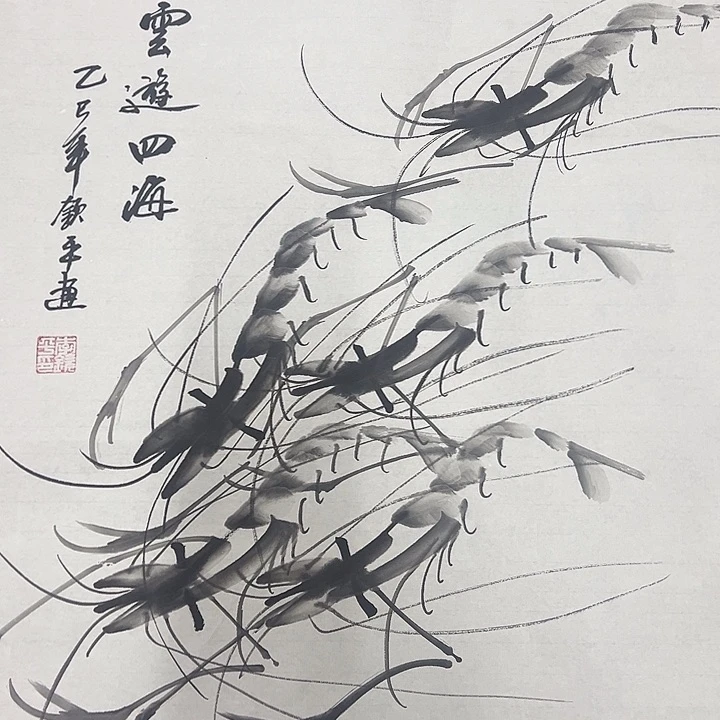 雲遊四海
乙巳年平畫